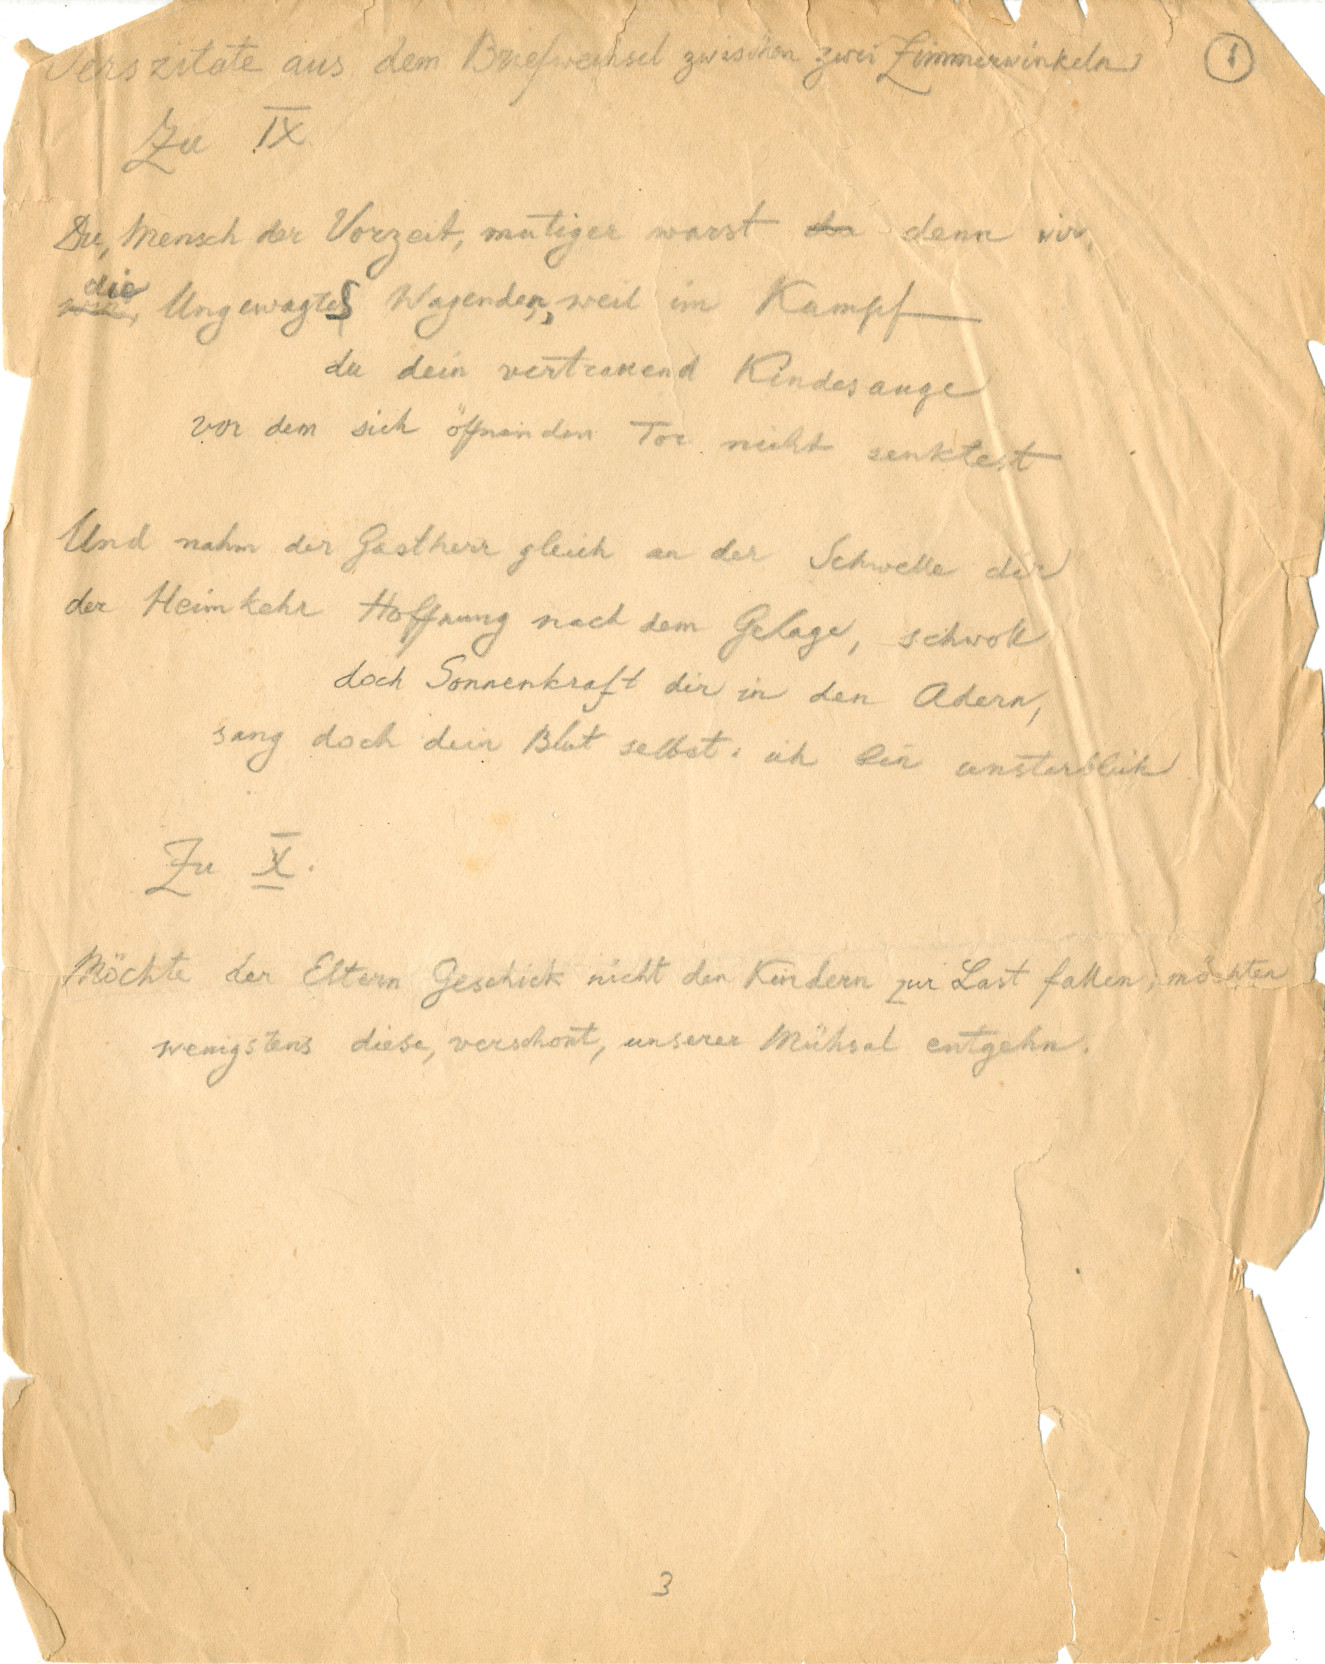 Verszitate aus dem Briefwechsel zwischen zwei Zimmerwinkeln 1
Zu IX
Du, Mensch der Vorzeit, mutiger warst du denn wir,
die Ungewagtes Wagenden, weil im Kampf
du dein vertrauend Kindesauge
vor dem sich öffnenden Tor nicht senktest
Und nahm der Gastherr gleich an der Schwelle dir
der Heimkehr Hoffnung nach dem Gelage, schwoll
doch Sonnenkraft dir in den Adern,
sang doch dein Blut selbst: ich bin unsterblich
Zu X.
Möchte der Eltern Geschick nicht den Kindern zur Last fallen; möchten
wenigstens diese, verschont, unserer Mühsal entgehn.
3